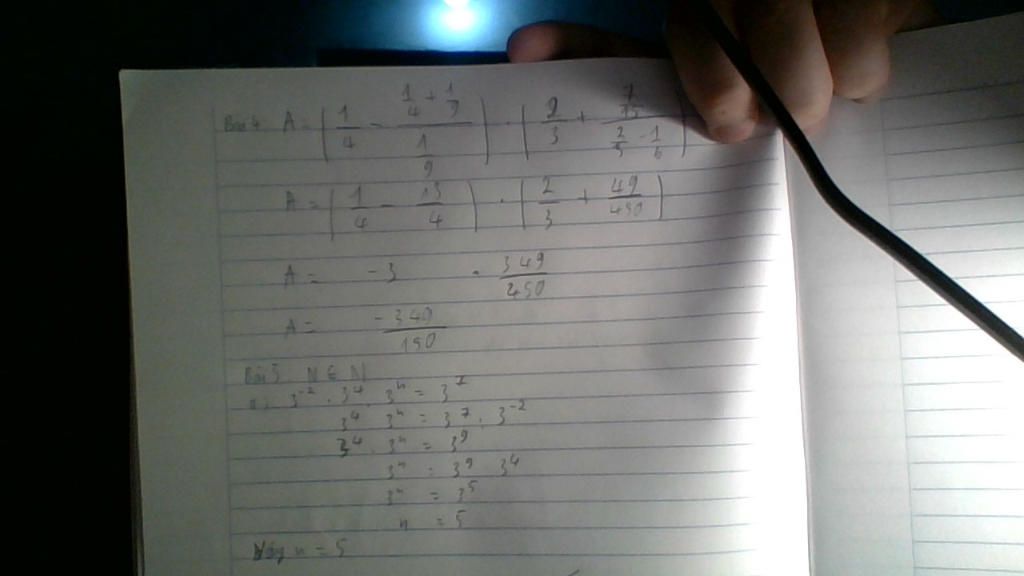 Bài 4. A = (1/4 - (1/4 + 1/9)/(1/9)) . (2/3 + (7/15)/(2/5 - 1/6))
A = (1/4 - 13/4) . (2/3 + 49/450)
A = -3 . 349/450
A = -349/150
Bài 5. N ∈ N
a) 3^-2 . 3^4 . 3^n = 3^7
3^4 . 3^n = 3^7 : 3^-2
3^4 . 3^n = 3^9
3^n = 3^9 : 3^4
3^n = 3^5
n = 5
Vậy n = 5